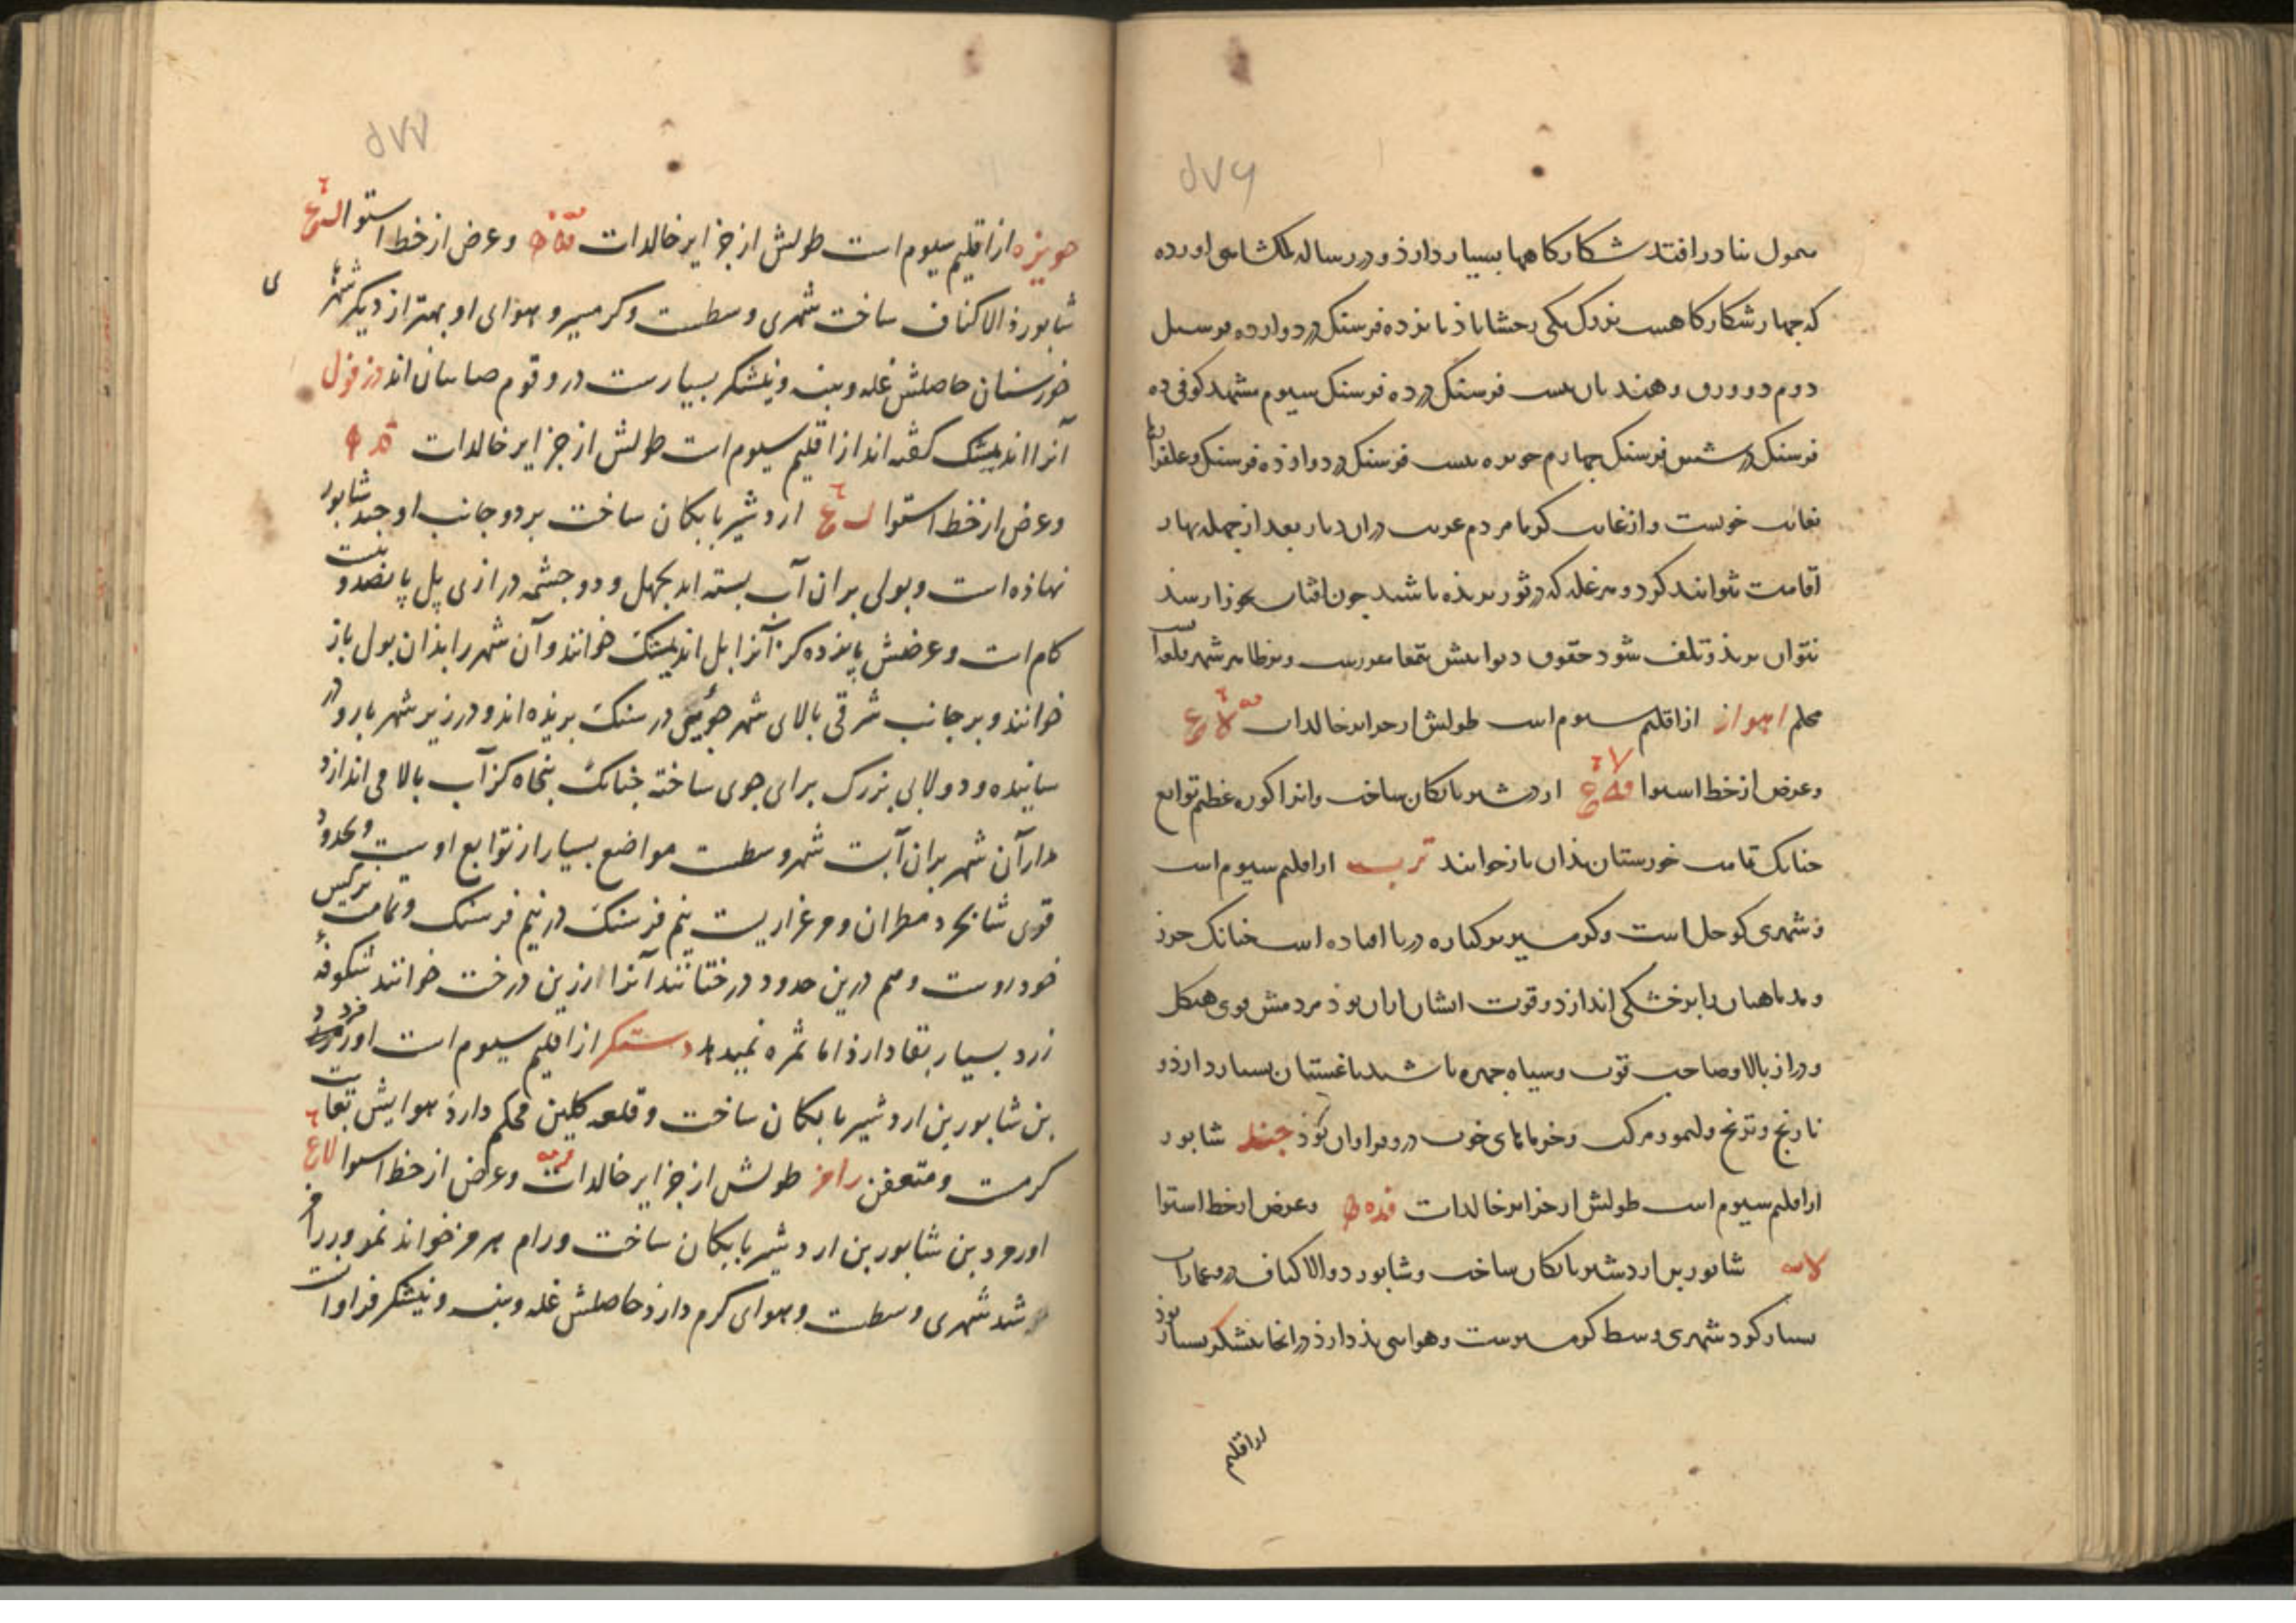 ۵۷۶
بنادر افتد شکارکاهها بسیار دارذ و در رساله ملکشاهی اورده
که چهار شکارکاهست بزرک یکی رخشاباذ بانزده فرسنک در دوازده
دوم دوورق و هندیان بیست فرسنک در ده فرسنک سیوم مشهد کوفی ده
فرسنک در شش فرسنک چهارم حویزه بیست فرسنک در دوازذه فرسنک و علفزارها
بغایت خوبست و از غایت کرما مردم غریب دران دیار بعد از جمله بهار
اقامت نتوانند کرد و هر غله که در ثور بریذه باشند چون افتاب بجوزا رسذ
نتوان بریذ و تلف شود حقوق دیوانیش بتمغا مقررست
اهواز از اقلیم سیوم است طولش از جزایر خالدات
وعرض از خط استوا اردشیر بابکان ساخت وانرا کوره عظیم توابع
جنانک تمامت خوزستان بذان باز خوانند ترب از اقلیم سیوم است
و شهری کوجک است و کرمسیر بر کناره دریا افتاده است جنانک جزر
و مد ماهیان را بر خشکی اندازد و قوت ایشان ازان بوذ مردمش قوی هیکل
و دراز بالا و صاحب قوت و سیاه جهره باشند باغستان بسیار دارذ و
نارنج و ترنج و لیمو و مرکب و خرماهای خوب درو فراوان بوذ جند شابور
از اقلیم سیوم است طولش از جزایر خالدات وعرض از خط استوا
شابور بن اردشیر بابکان ساخت و شابور ذوالاکتاف درو عمارات
بسیار کرد شهری وسط کرمسیرست وهوای بذ دارذ در انجا نیشکر بسیار بوذ
از اقلیم
۵۷۷
حویزه از اقلیم سیوم است طولش از جزایر خالدات وعرض از خط استوا
شابور ذوالاکتاف ساخت شهری وسطست و کرمسیر و هوای او بهتر از دیکر شهرها
ی
خوزستان حاصلش غله و پنبه و نیشکر بسیارست درو قوم صابیان اند دزفول
آنرا اندیمشک کفته اند از اقلیم سیوم است طولش از جزایر خالدات
وعرض از خط استوا اردشیر بابکان ساخت بر دو جانب او جند شابور
نهاذه است و پولی بران آب بسته اند بجهل و دو جشمه درازی پل پانصد و بیست
کام است و عرضش پانزده کز آنرا پل اندیمشک خوانند و آن شهر را بذان پول باز
خوانند و بر جانب شرقی بالای شهر جوئی در سنک بریذه اند و در زیر شهر با رود
رسانیده و دولابی بزرک برای جوی ساخته جنانک پنجاه کز آب بالا می اندازد
مدار آن شهر بران آبست شهر وسطست مواضع بسیار از توابع اوست و بحدود
قوی شابجرد مطران و مرغزاریست نیم فرسنک در نیم فرسنک و تمامت نرکس
خودروست و هم درین حدود درختانند آنرا ارزین درخت خوانند شکوفهٔ
زرد بسیار بقا دارذ اما ثمره نمیدهد دستکر از اقلیم سیوم است اورمزد
بن شابور بن اردشیر بابکان ساخت و قلعه کلین محکم دارذ هوایش بغایت
کرمست و متعفن رامز طولش از جزایر خالدات وعرض از خط استوا
اورمزد بن شابور بن اردشیر بابکان ساخت و رام هرمز خواند بمرور رامز
شد شهری وسطست و هوای کرم دارذ حاصلش غله و پنبه و نیشکر فراوانست